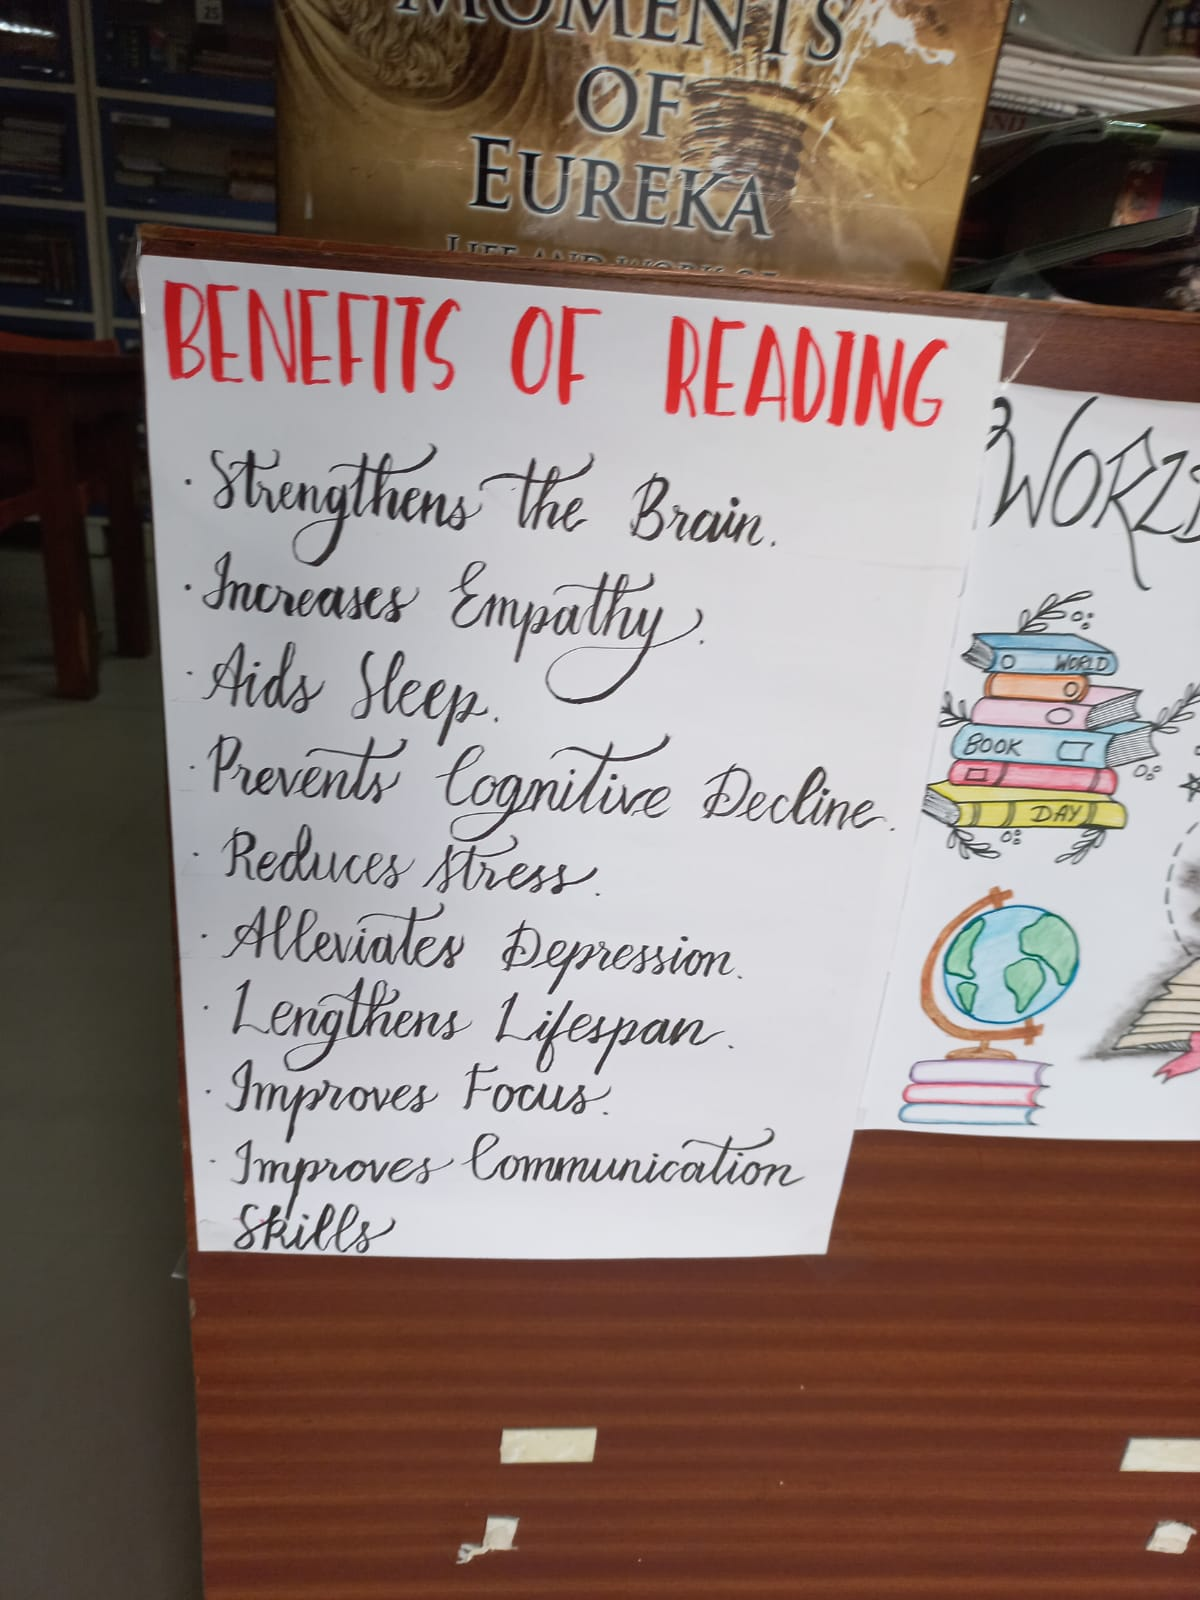 MOMENTS
OF
EUREKA
LIFE AND WORK OF
25
BENEFITS OF READING
· Strengthens the Brain.
· Increases Empathy.
· Aids Sleep.
· Prevents Cognitive Decline.
· Reduces stress.
· Alleviates Depression.
· Lengthens Lifespan.
· Improves Focus.
· Improves Communication
Skills
WORLD
WORLD
BOOK
DAY